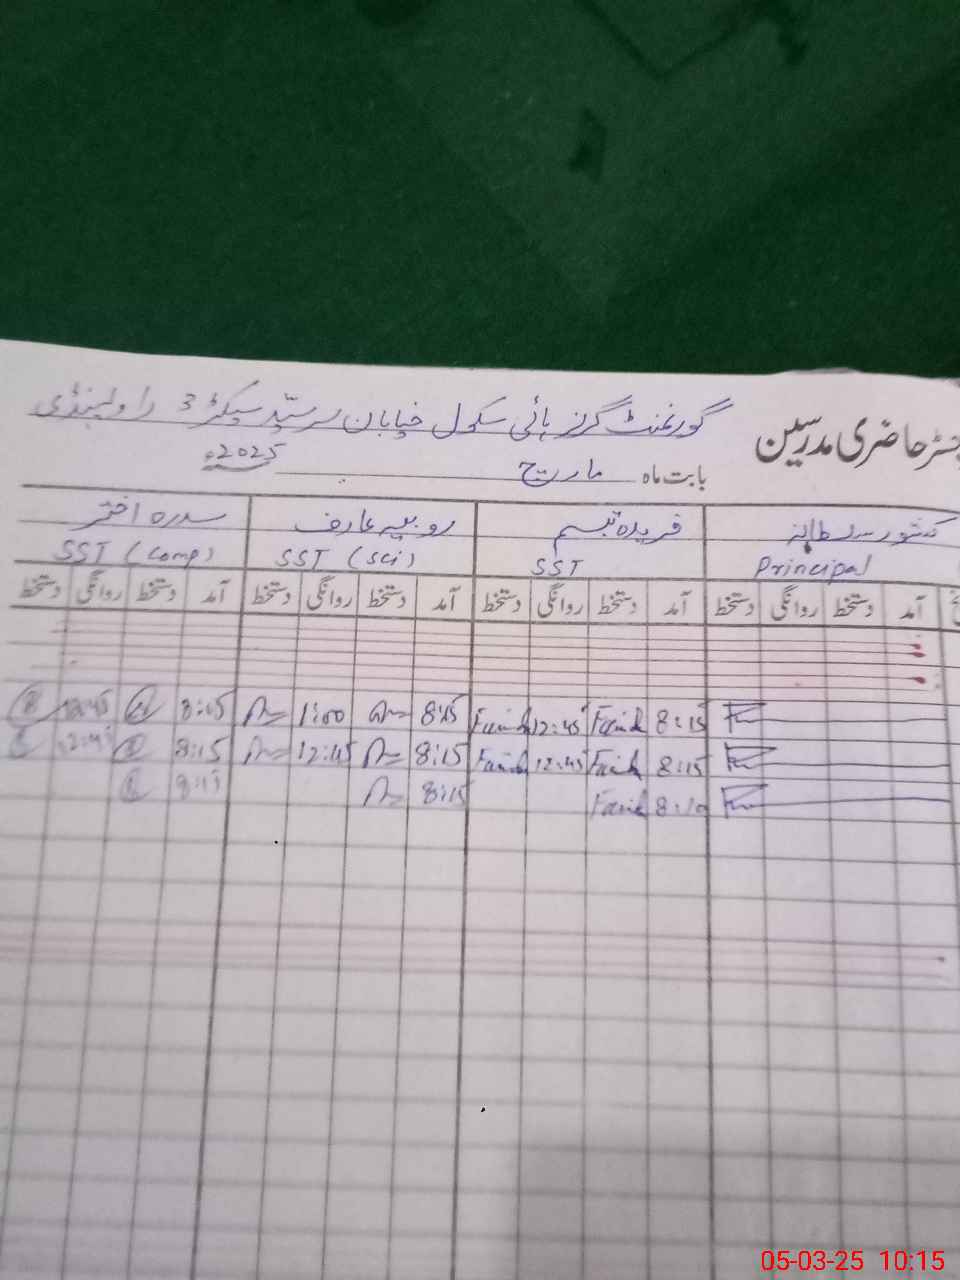 رجسٹر حاضری مدرسین
گورنمنٹ گرلز ہائی سکول خیابان سرسید سیکٹر 3 راولپنڈی
بابت ماہ مارچ 2025ء
کشور سلطانہ فریدہ تبسم روبیہ عارف سدرہ اختر
Principal SST SST (Sci) SST (Comp)
آمد دستخط روانگی دستخط آمد دستخط روانگی دستخط آمد دستخط روانگی دستخط آمد دستخط روانگی دستخط
8:15 Farid 12:45 Farid 8:15 1:00 8:15 12:45
8:15 Farid 12:45 Farid 8:15 12:45 8:15 12:45
8:10 Farid 8:15 8:15
05-03-25 10:15